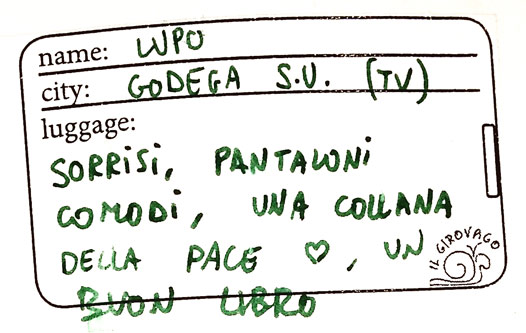 name: LUPO
city: GODEGA S.U. (TV)
luggage:
SORRISI, PANTALONI
COMODI, UNA COLLANA
DELLA PACE ♡, UN
BUON LIBRO
IL GIROVAGO